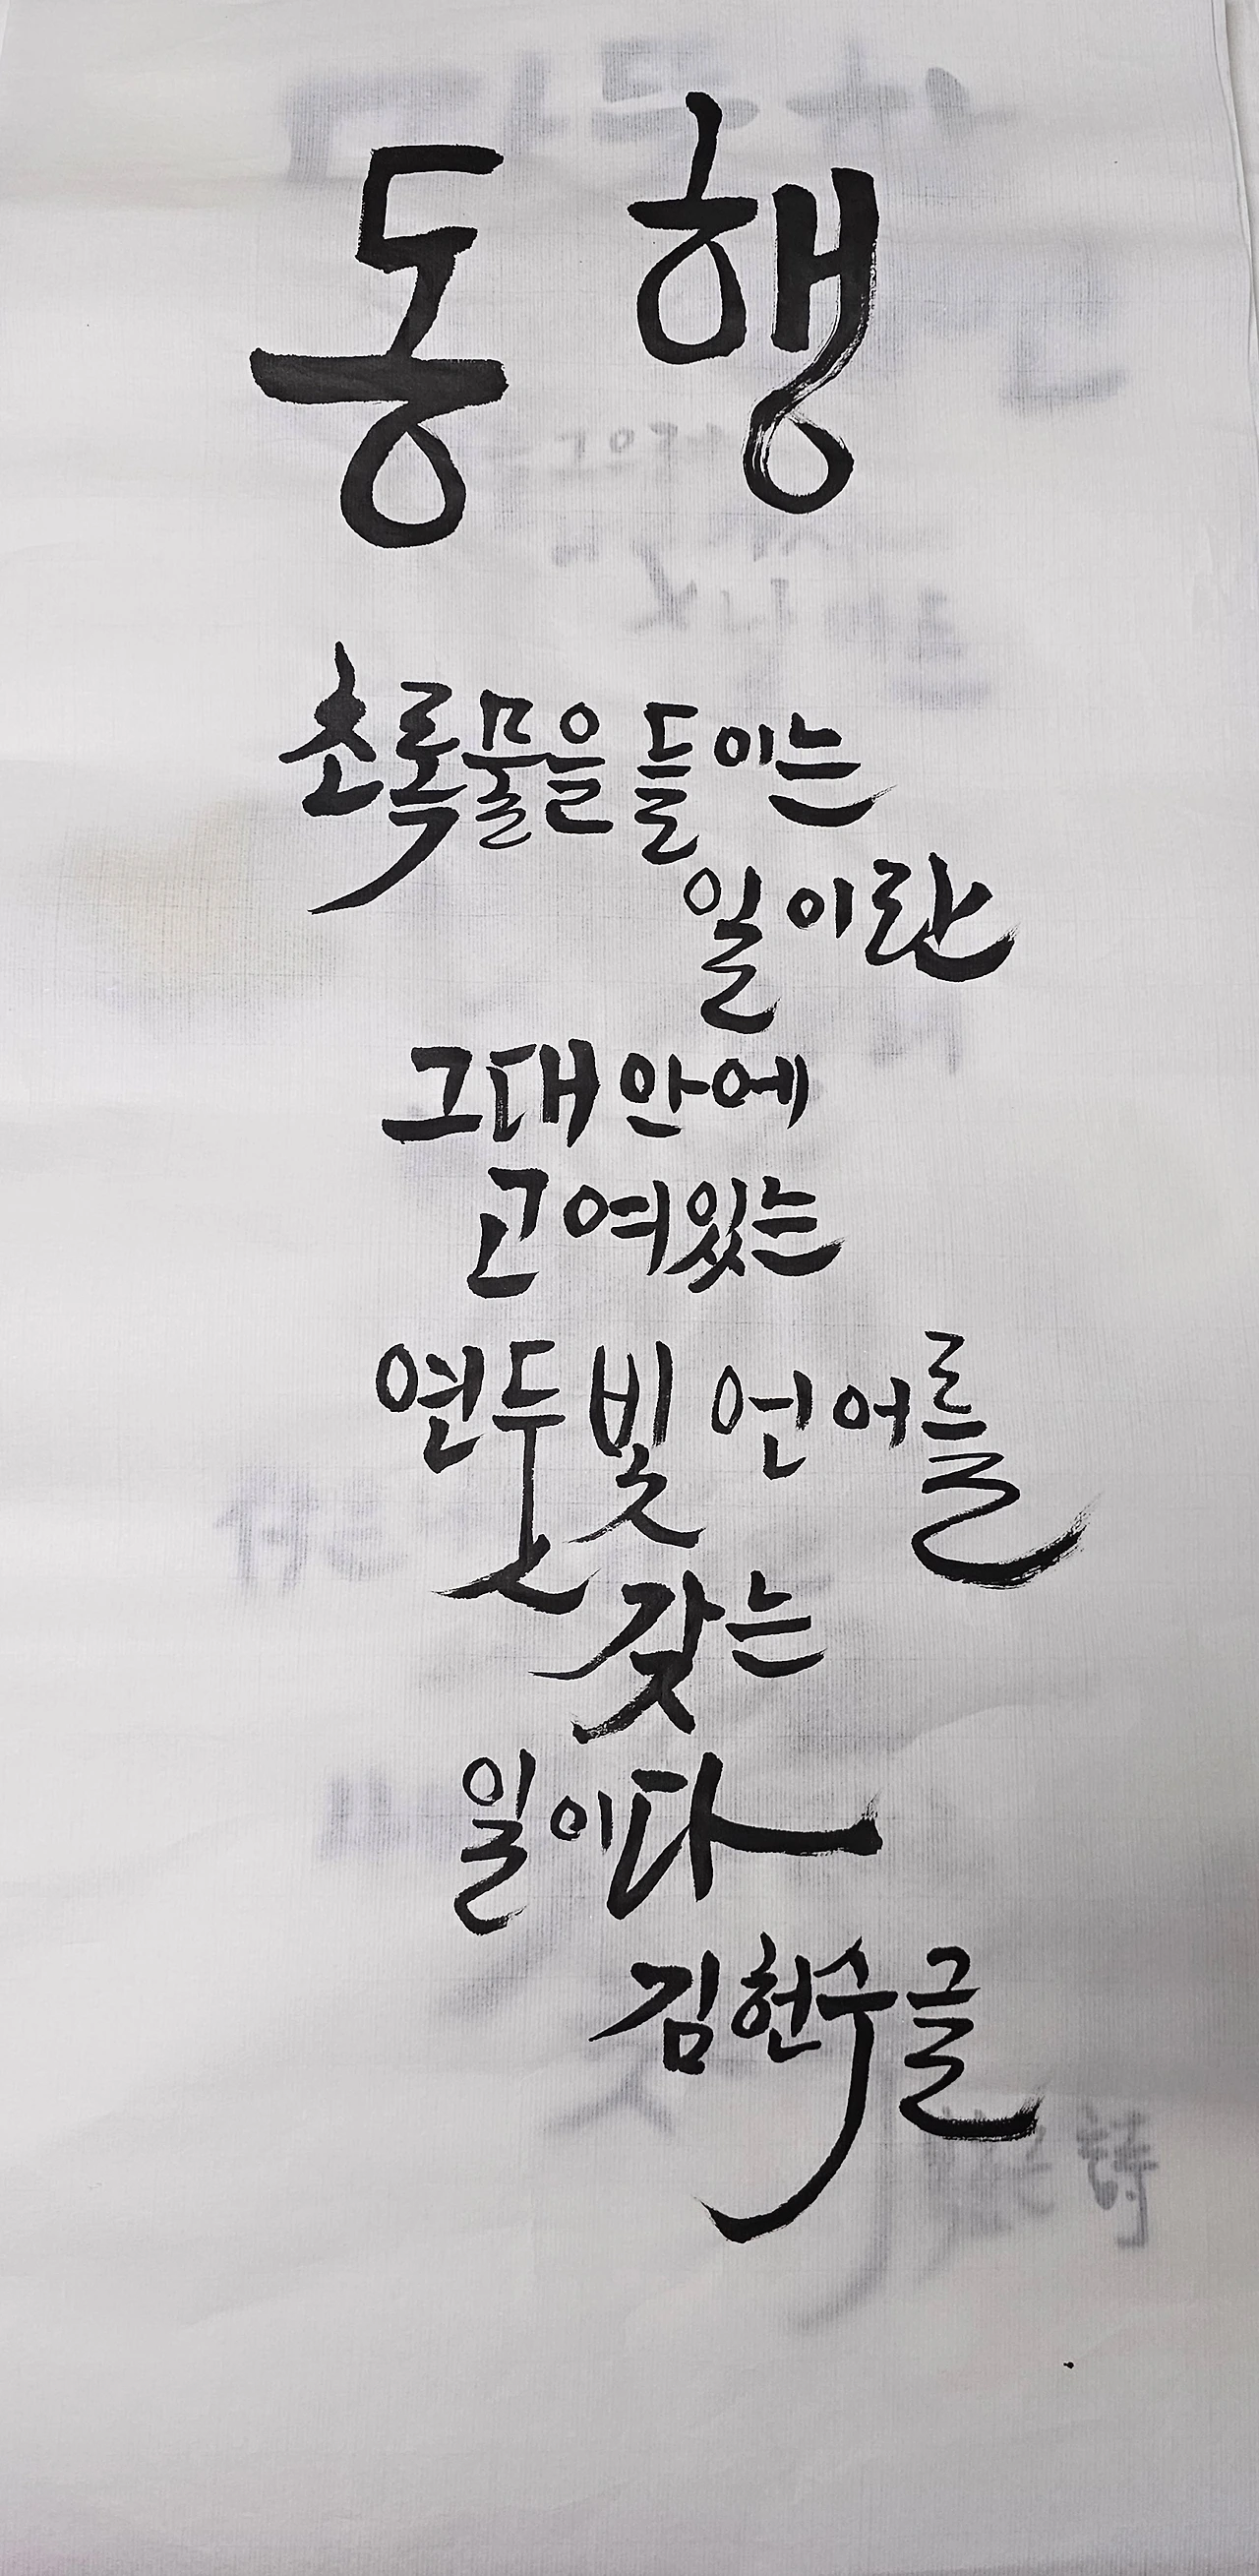 동행
초록물을 들이는
일이란
그대 안에
고여있는
연두빛 언어를
갖는
일이다
김현수 글
詩